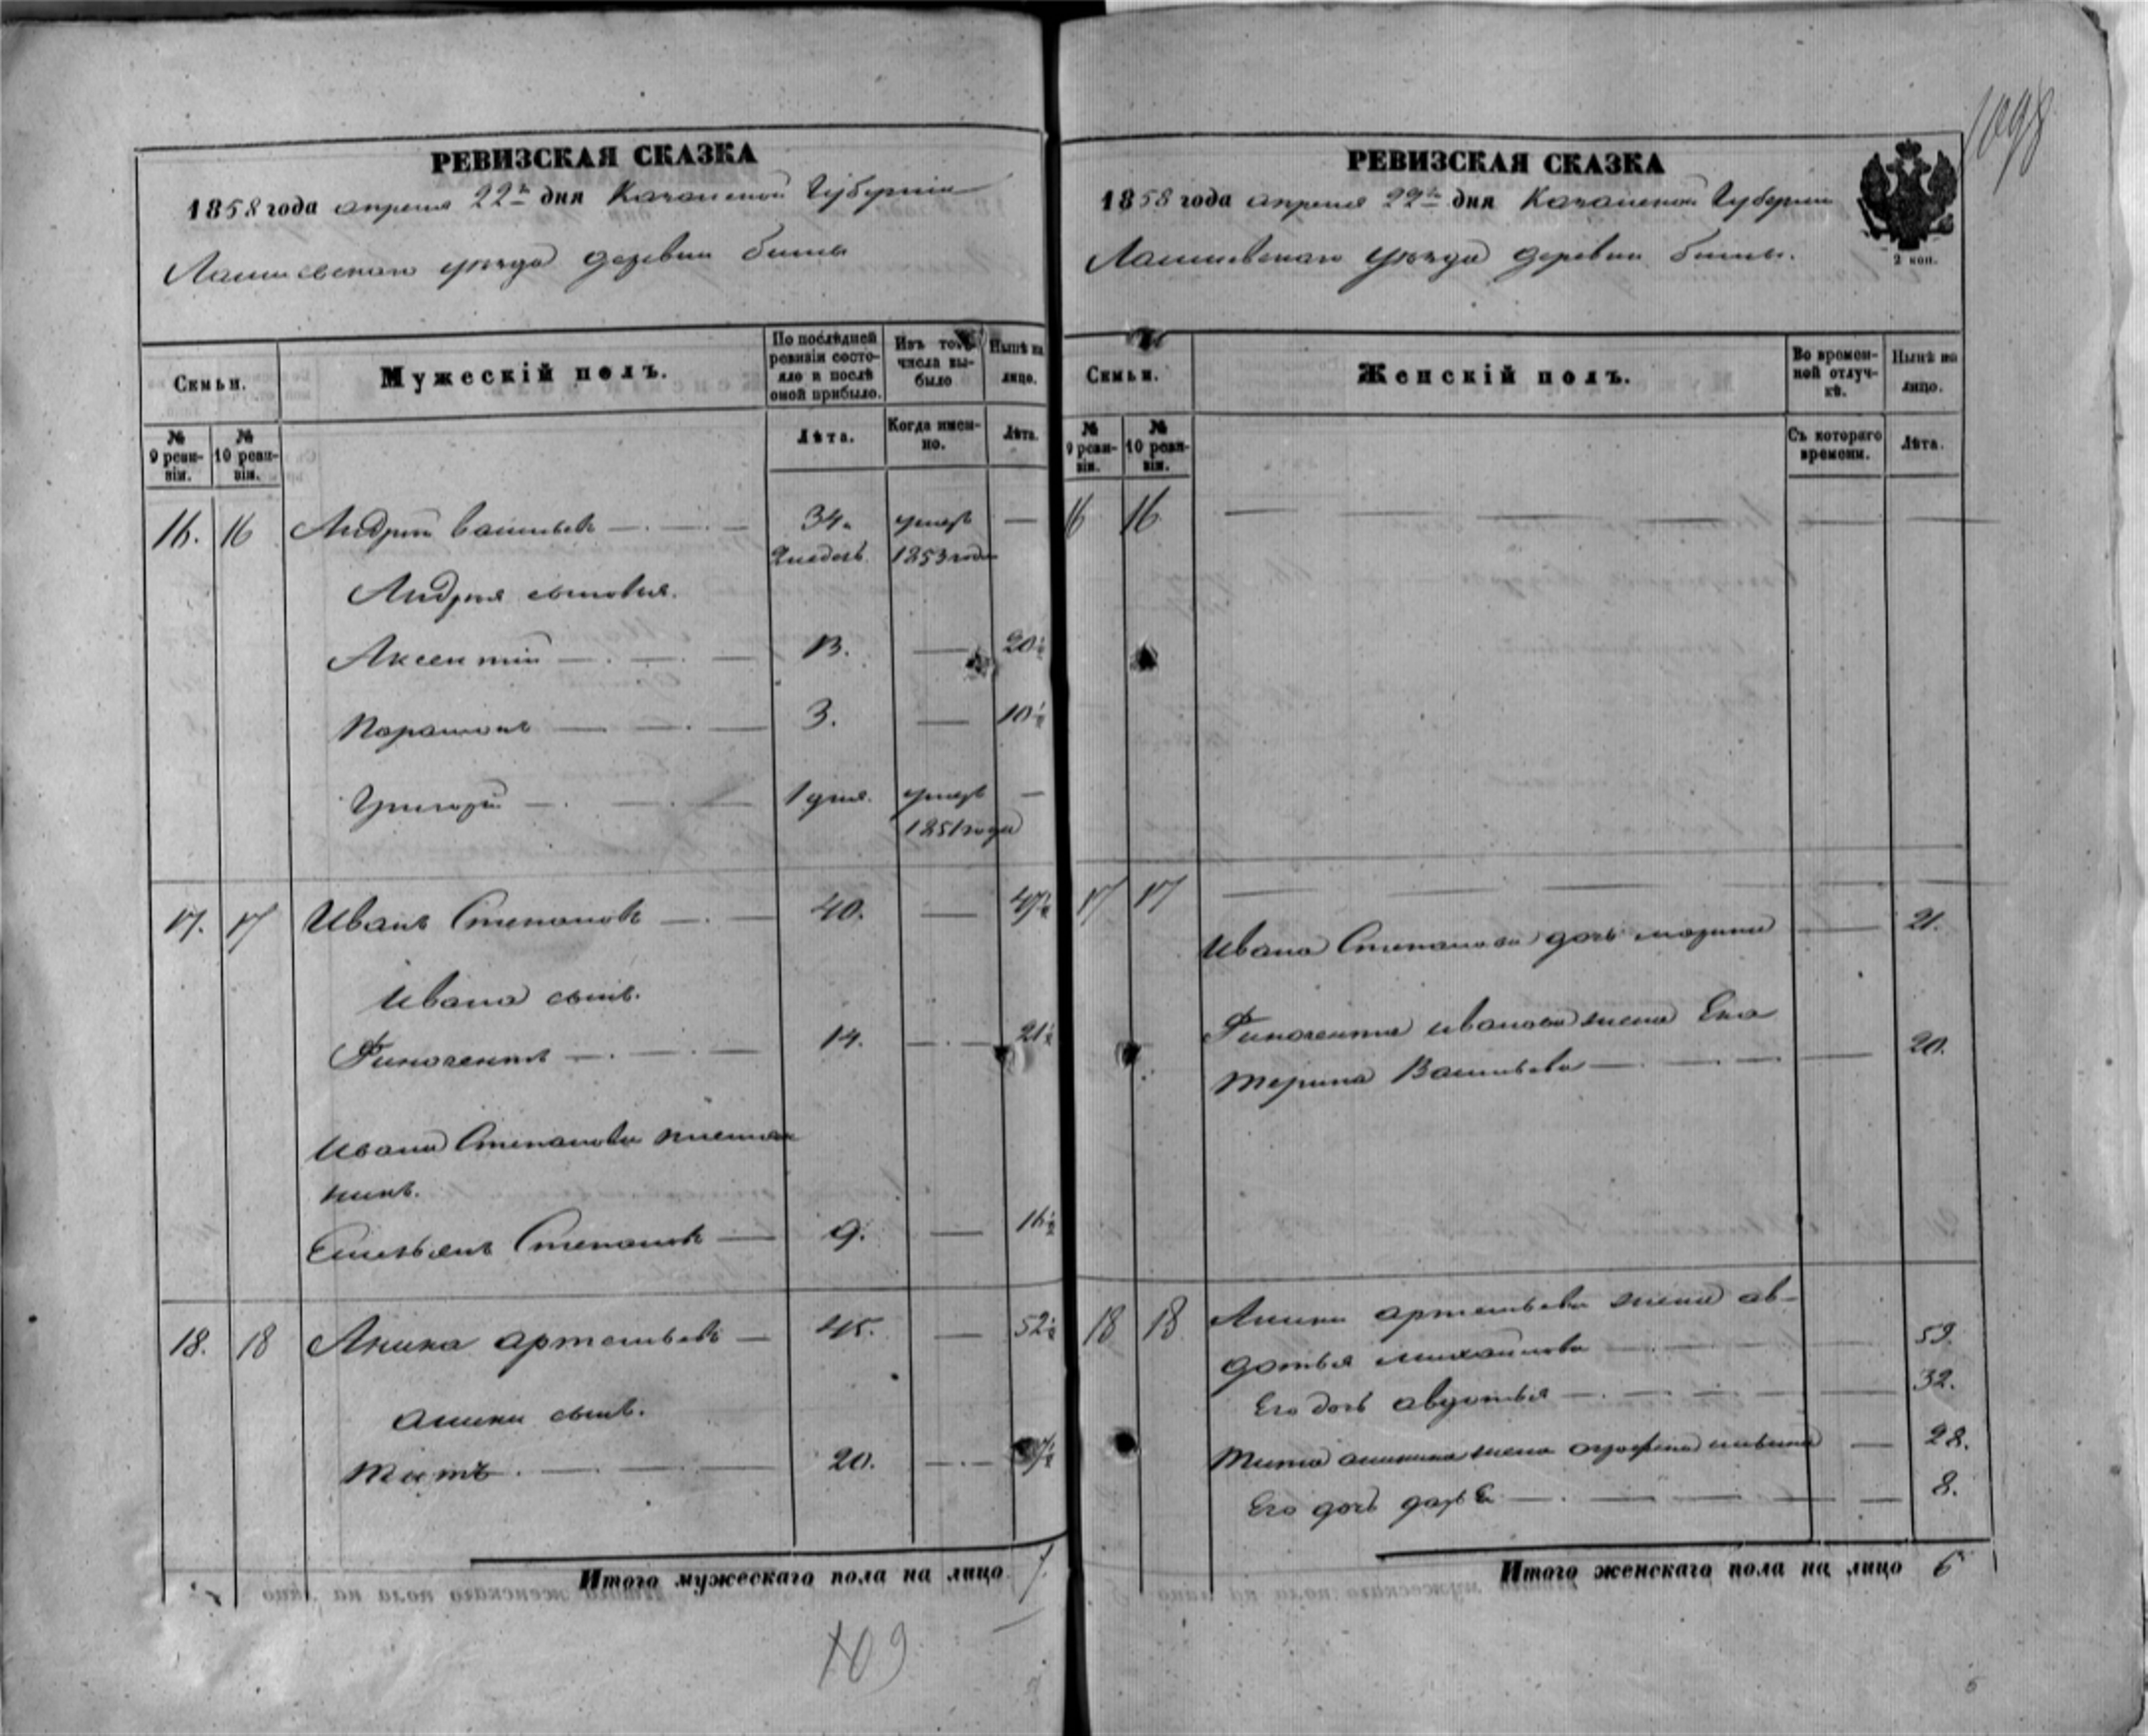 1098
РЕВИЗСКАЯ СКАЗКА
1858 года апреля 22го дня Казанской Губернии
Лаишевского уезда деревни
Семьи.
Мужескій полъ.
По послѣдней ревизіи состояло и послѣ оной прибыло.
Изъ того числа выбыло
Нынѣ на лицо.
№ 9 ревизіи.
№ 10 ревизіи.
Лѣта.
Когда именно.
Лѣта.
16. 16 Андрей Васильевъ — 34. умеръ —
1853 года
Андрея сыновья.
Аксентий — 13. — 20½
Парамонъ — 3. — 10½
Григорий — 1 умеръ —
1851 года
17. 17 Иванъ Степановъ — 40. — 47½
Ивана сынъ.
14. — 21½
Ивана Степанова племян
никъ.
Емельянъ Степановъ — 9. — 16½
18. 18 Аника Артемьевъ — 45. — 52½
Аники сынъ.
Титъ — 20. —
Итого мужескаго пола на лицо 7.
109
РЕВИЗСКАЯ СКАЗКА
1858 года апреля 22го дня Казанской Губернии
Лаишевского уезда деревни
2 коп.
Семьи.
Женскій полъ.
Во временной отлучкѣ.
Нынѣ на лицо.
№ 9 ревизіи.
№ 10 ревизіи.
Съ котораго времени.
Лѣта.
16 16 — — — — —
17 17 — — — —
Ивана Степанова дочь Марина — 21.
Иванова жена Ека
терина Васильева — — 20.
18 18 Аники Артемьева жена Ав-
дотья Михайлова — 59.
Его дочь Авдотья — 32.
Тита Аникина жена — 28.
Его дочь Дарья — 8.
Итого женскаго пола на лицо 6